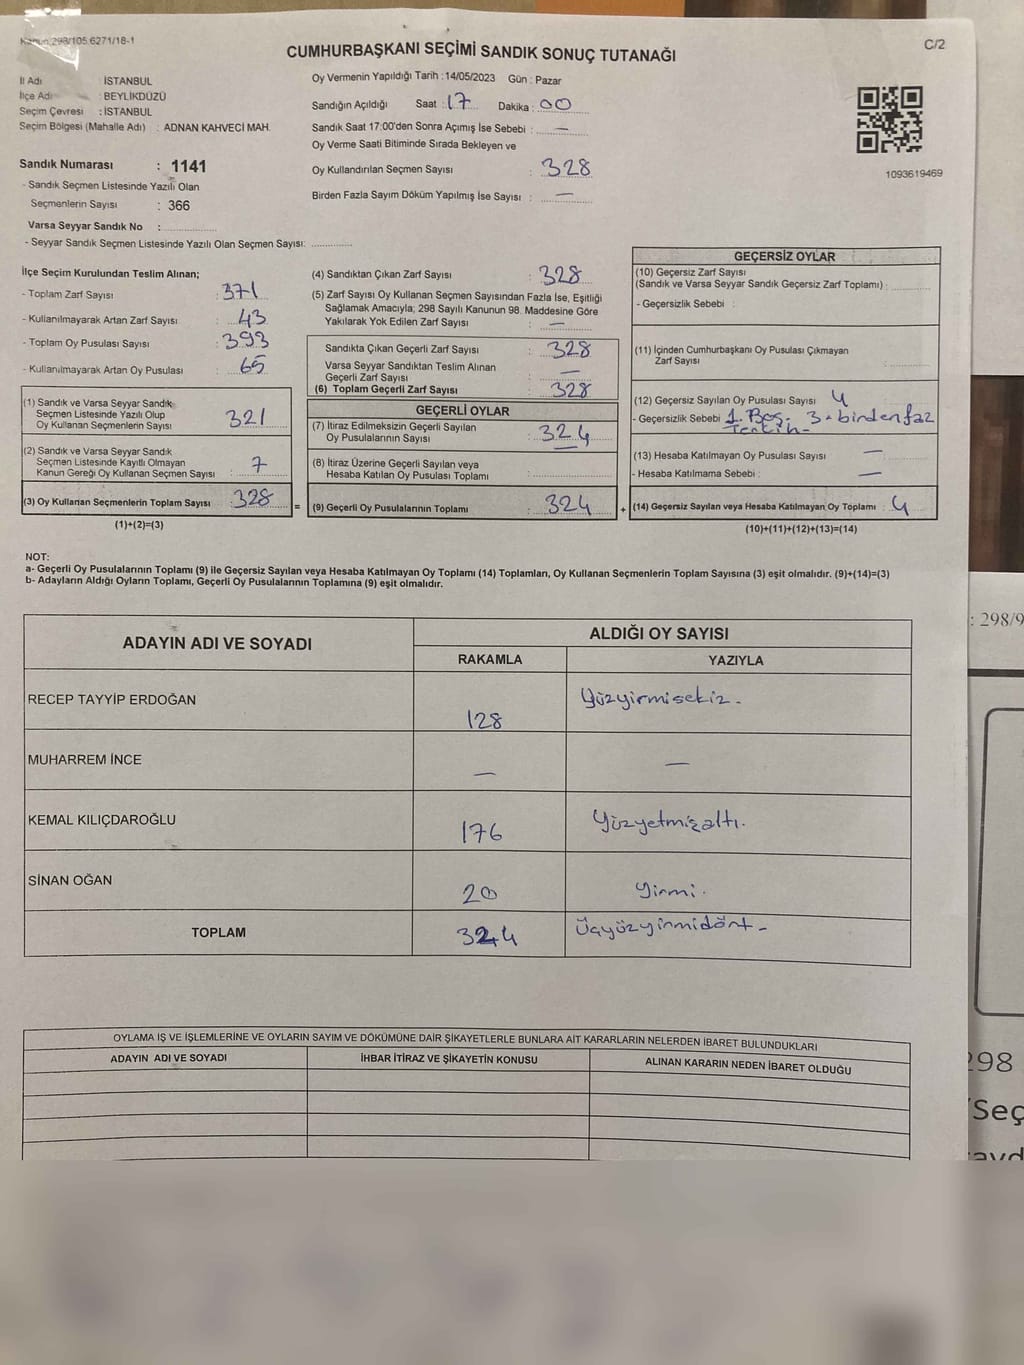 Kanun:298/105.6271/18-1
C/2
CUMHURBAŞKANI SEÇİMİ SANDIK SONUÇ TUTANAĞI
İl Adı : İSTANBUL
İlçe Adı : BEYLİKDÜZÜ
Seçim Çevresi : İSTANBUL
Seçim Bölgesi (Mahalle Adı) : ADNAN KAHVECİ MAH.
Oy Vermenin Yapıldığı Tarih : 14/05/2023 Gün : Pazar
Sandığın Açıldığı Saat : 17 Dakika : 00
Sandık Saat 17:00'den Sonra Açımış İse Sebebi : —
Oy Verme Saati Bitiminde Sırada Bekleyen ve
Oy Kullandırılan Seçmen Sayısı : 328
Birden Fazla Sayım Döküm Yapılmış İse Sayısı : —
1093619469
Sandık Numarası : 1141
- Sandık Seçmen Listesinde Yazılı Olan
Seçmenlerin Sayısı : 366
Varsa Seyyar Sandık No :
- Seyyar Sandık Seçmen Listesinde Yazılı Olan Seçmen Sayısı:
İlçe Seçim Kurulundan Teslim Alınan;
- Toplam Zarf Sayısı : 371
- Kullanılmayarak Artan Zarf Sayısı : 43
- Toplam Oy Pusulası Sayısı : 393
- Kullanılmayarak Artan Oy Pusulası : 65
(1) Sandık ve Varsa Seyyar Sandık
Seçmen Listesinde Yazılı Olup
Oy Kullanan Seçmenlerin Sayısı 321
(2) Sandık ve Varsa Seyyar Sandık
Seçmen Listesinde Kayıtlı Olmayan
Kanun Gereği Oy Kullanan Seçmen Sayısı : 7
(3) Oy Kullanan Seçmenlerin Toplam Sayısı 328
(1)+(2)=(3)
(4) Sandıktan Çıkan Zarf Sayısı : 328
(5) Zarf Sayısı Oy Kullanan Seçmen Sayısından Fazla İse, Eşitliği
Sağlamak Amacıyla; 298 Sayılı Kanunun 98. Maddesine Göre
Yakılarak Yok Edilen Zarf Sayısı : —
Sandıkta Çıkan Geçerli Zarf Sayısı : 328
Varsa Seyyar Sandıktan Teslim Alınan
Geçerli Zarf Sayısı : —
(6) Toplam Geçerli Zarf Sayısı : 328
GEÇERLİ OYLAR
(7) İtiraz Edilmeksizin Geçerli Sayılan
Oy Pusulalarının Sayısı : 324
(8) İtiraz Üzerine Geçerli Sayılan veya
Hesaba Katılan Oy Pusulası Toplamı : —
= (9) Geçerli Oy Pusulalarının Toplamı : 324
GEÇERSİZ OYLAR
(10) Geçersiz Zarf Sayısı
(Sandık ve Varsa Seyyar Sandık Geçersiz Zarf Toplamı) :
- Geçersizlik Sebebi :
(11) İçinden Cumhurbaşkanı Oy Pusulası Çıkmayan
Zarf Sayısı :
(12) Geçersiz Sayılan Oy Pusulası Sayısı : 4
- Geçersizlik Sebebi : 1. Boş. 3- birden faz
Tercih-
(13) Hesaba Katılmayan Oy Pusulası Sayısı : —
- Hesaba Katılmama Sebebi : —
+ (14) Geçersiz Sayılan veya Hesaba Katılmayan Oy Toplamı : 4
(10)+(11)+(12)+(13)=(14)
NOT:
a- Geçerli Oy Pusulalarının Toplamı (9) ile Geçersiz Sayılan veya Hesaba Katılmayan Oy Toplamı (14) Toplamları, Oy Kullanan Seçmenlerin Toplam Sayısına (3) eşit olmalıdır. (9)+(14)=(3)
b- Adayların Aldığı Oyların Toplamı, Geçerli Oy Pusulalarının Toplamına (9) eşit olmalıdır.
ADAYIN ADI VE SOYADI
ALDIĞI OY SAYISI
RAKAMLA YAZIYLA
RECEP TAYYİP ERDOĞAN 128 Yüzyirmisekiz.
MUHARREM İNCE — —
KEMAL KILIÇDAROĞLU 176 Yüzyetmişaltı.
SİNAN OĞAN 20 Yirmi.
TOPLAM 324 Üçyüzyirmidört-
OYLAMA İŞ VE İŞLEMLERİNE VE OYLARIN SAYIM VE DÖKÜMÜNE DAİR ŞİKAYETLERLE BUNLARA AİT KARARLARIN NELERDEN İBARET BULUNDUKLARI
ADAYIN ADI VE SOYADI İHBAR İTİRAZ VE ŞİKAYETİN KONUSU ALINAN KARARIN NEDEN İBARET OLDUĞU
: 298/9
298
Seç